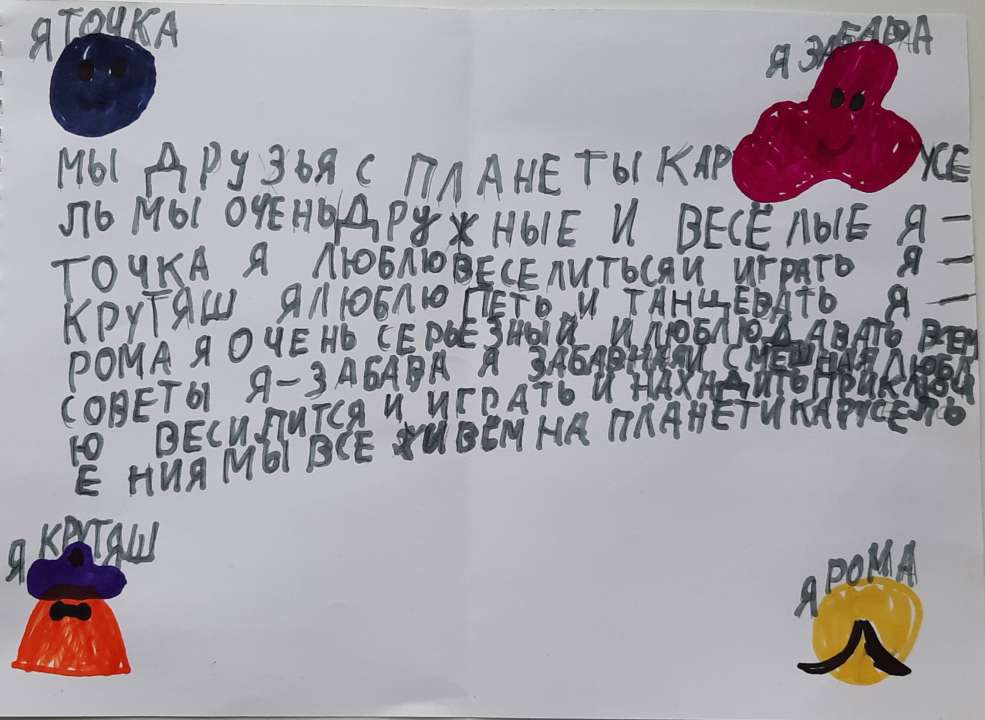 Я ТОЧКА
Я ЗАБАВА
МЫ ДРУЗЬЯ С ПЛАНЕТЫ КАРУСЕ
ЛЬ МЫ ОЧЕНЬ ДРУЖНЫЕ И ВЕСЁЛЫЕ Я –
ТОЧКА Я ЛЮБЛЮ ВЕСЕЛИТЬСЯ И ИГРАТЬ Я –
КРУТЯШ Я ЛЮБЛЮ ПЕТЬ И ТАНЦЕВАТЬ Я –
РОМА Я ОЧЕНЬ СЕРЬЕЗНЫЙ И ЛЮБЛЮ ДАВАТЬ ВСЕМ
СОВЕТЫ Я – ЗАБАВА Я ЗАБАВНАЯ И СМЕШНАЯ ЛЮБЛ
Ю ВЕСИЛИТСЯ И ИГРАТЬ И НАХАДИТЬ ПРИКЛЮЧ
Е НИЯ МЫ ВСЕ ЖИВЁМ НА ПЛАНЕТИ КАРУСЕЛЬ
Я КРУТЯШ
Я РОМА